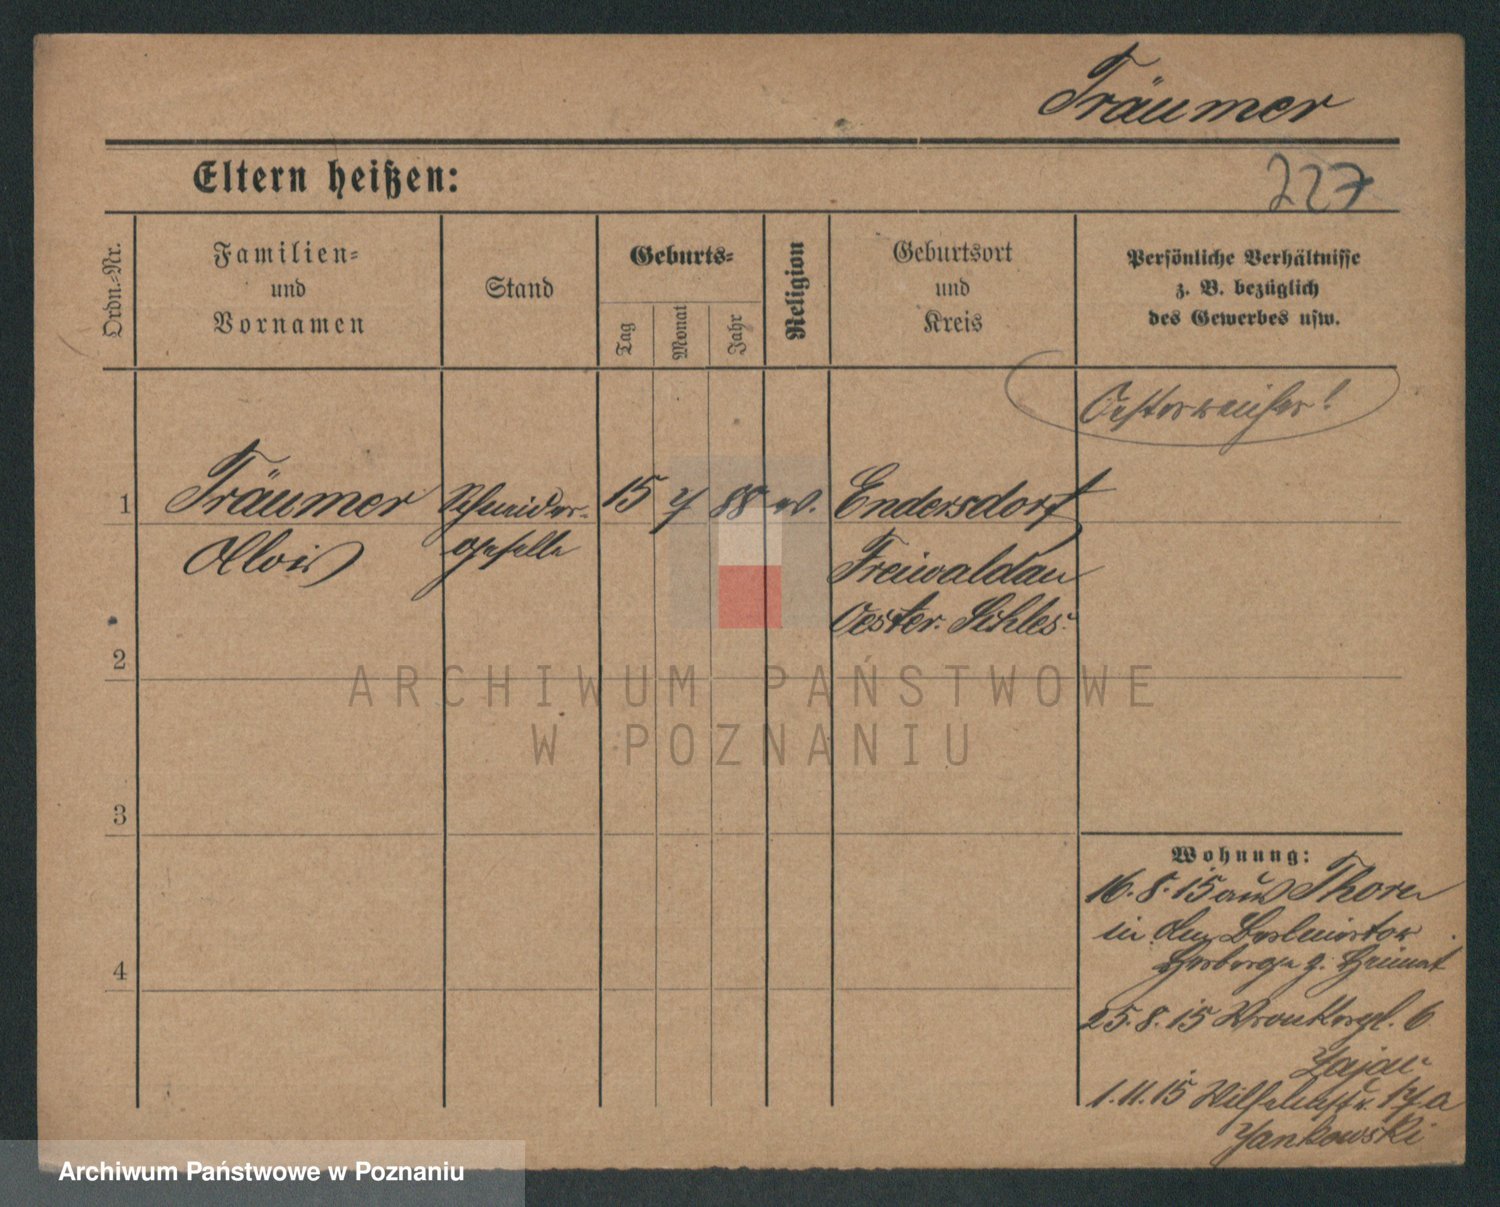 Träumer
Eltern heißen:
227
Ordn.-Nr.
Familien-
und
Vornamen
Stand
Geburts-
Tag
Monat
Jahr
Religion
Geburtsort
und
Kreis
Persönliche Verhältnisse
z. B. bezüglich
des Gewerbes usw.
Oesterreicher!
1
Träumer
Alois
Schneider-
geselle
15
7
88
ev.
Endersdorf
Freiwaldau
Oester. Schles.
2
ARCHIWUM PAŃSTWOWE
W POZNANIU
3
Wohnung:
16.8.15 aus Thorn
in den
Herberge z. Heimat
4
25.8.15 Wronkerpl. 6
Zajac
1.11.15 Wilhelmstr. 17a
Jankowski
Archiwum Państwowe w Poznaniu